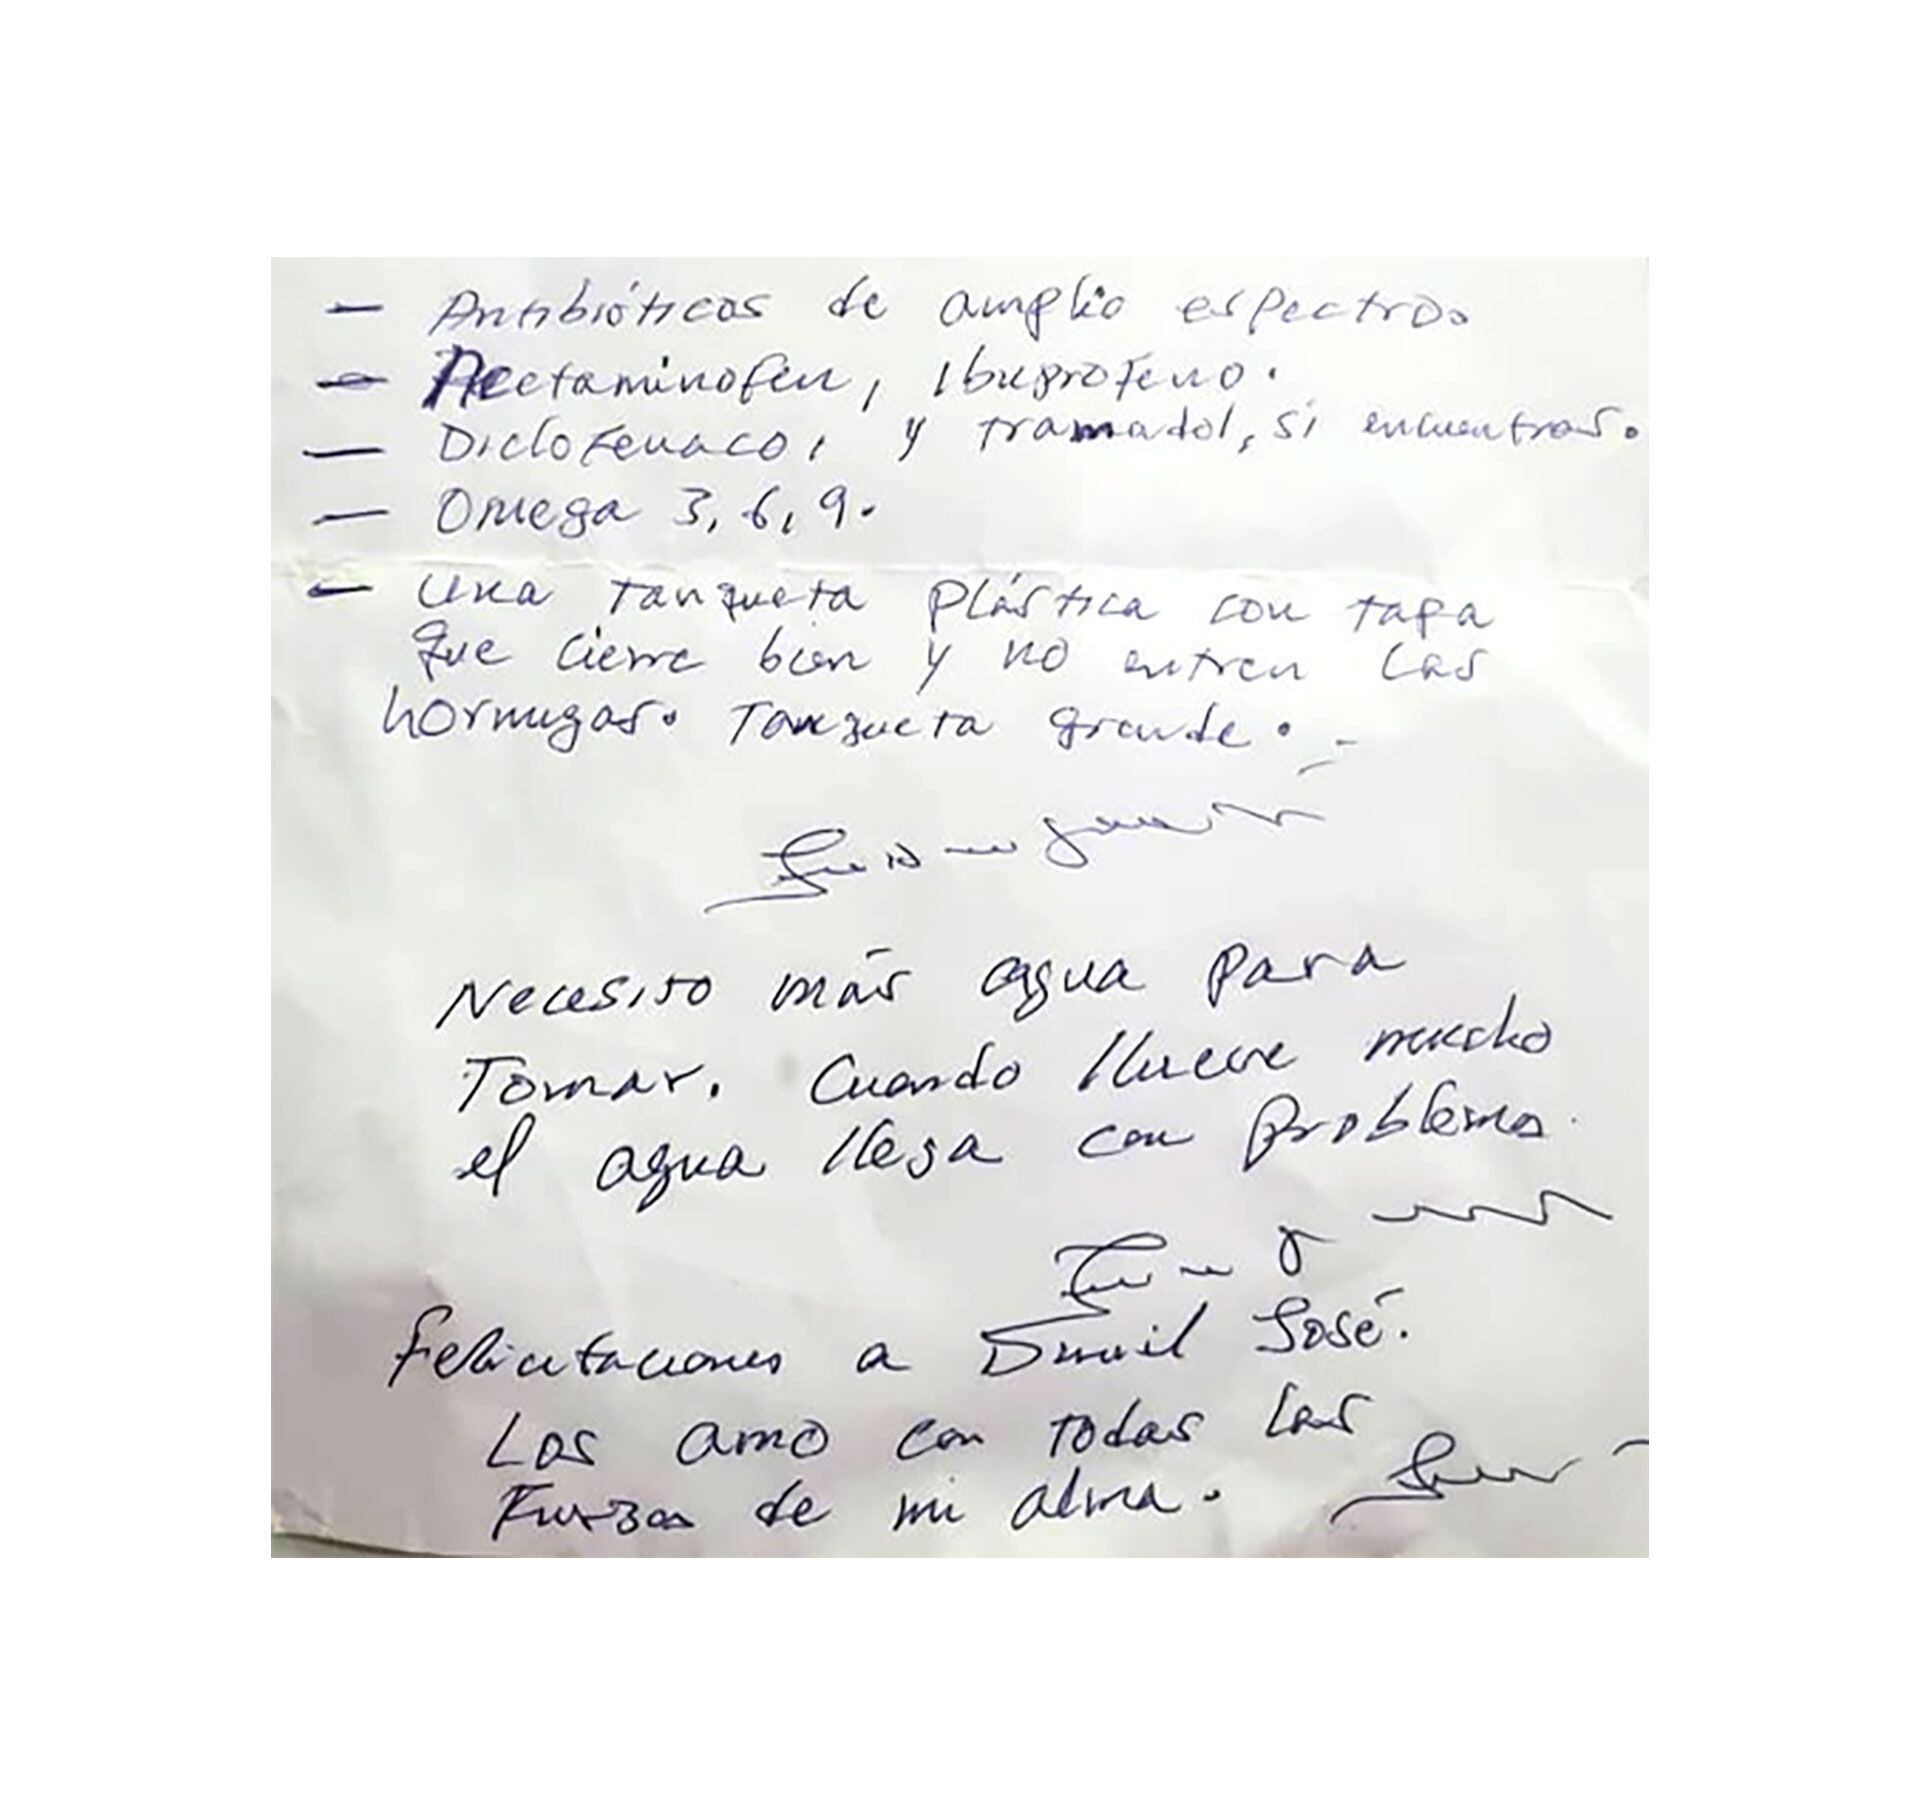 — Antibióticos de amplio espectro.
— Acetaminofen, Ibuprofeno.
— Diclofenaco, y tramadol, si encuentras.
— Omega 3, 6, 9.
— Una tanqueta plástica con tapa
que cierre bien y no entren las
hormigas. Tanqueta grande.
Necesito más agua para
Tomar. Cuando llueve mucho
el agua llega con problema.
Felicitaciones a José.
Los amo con todas las
Fuerzas de mi alma.